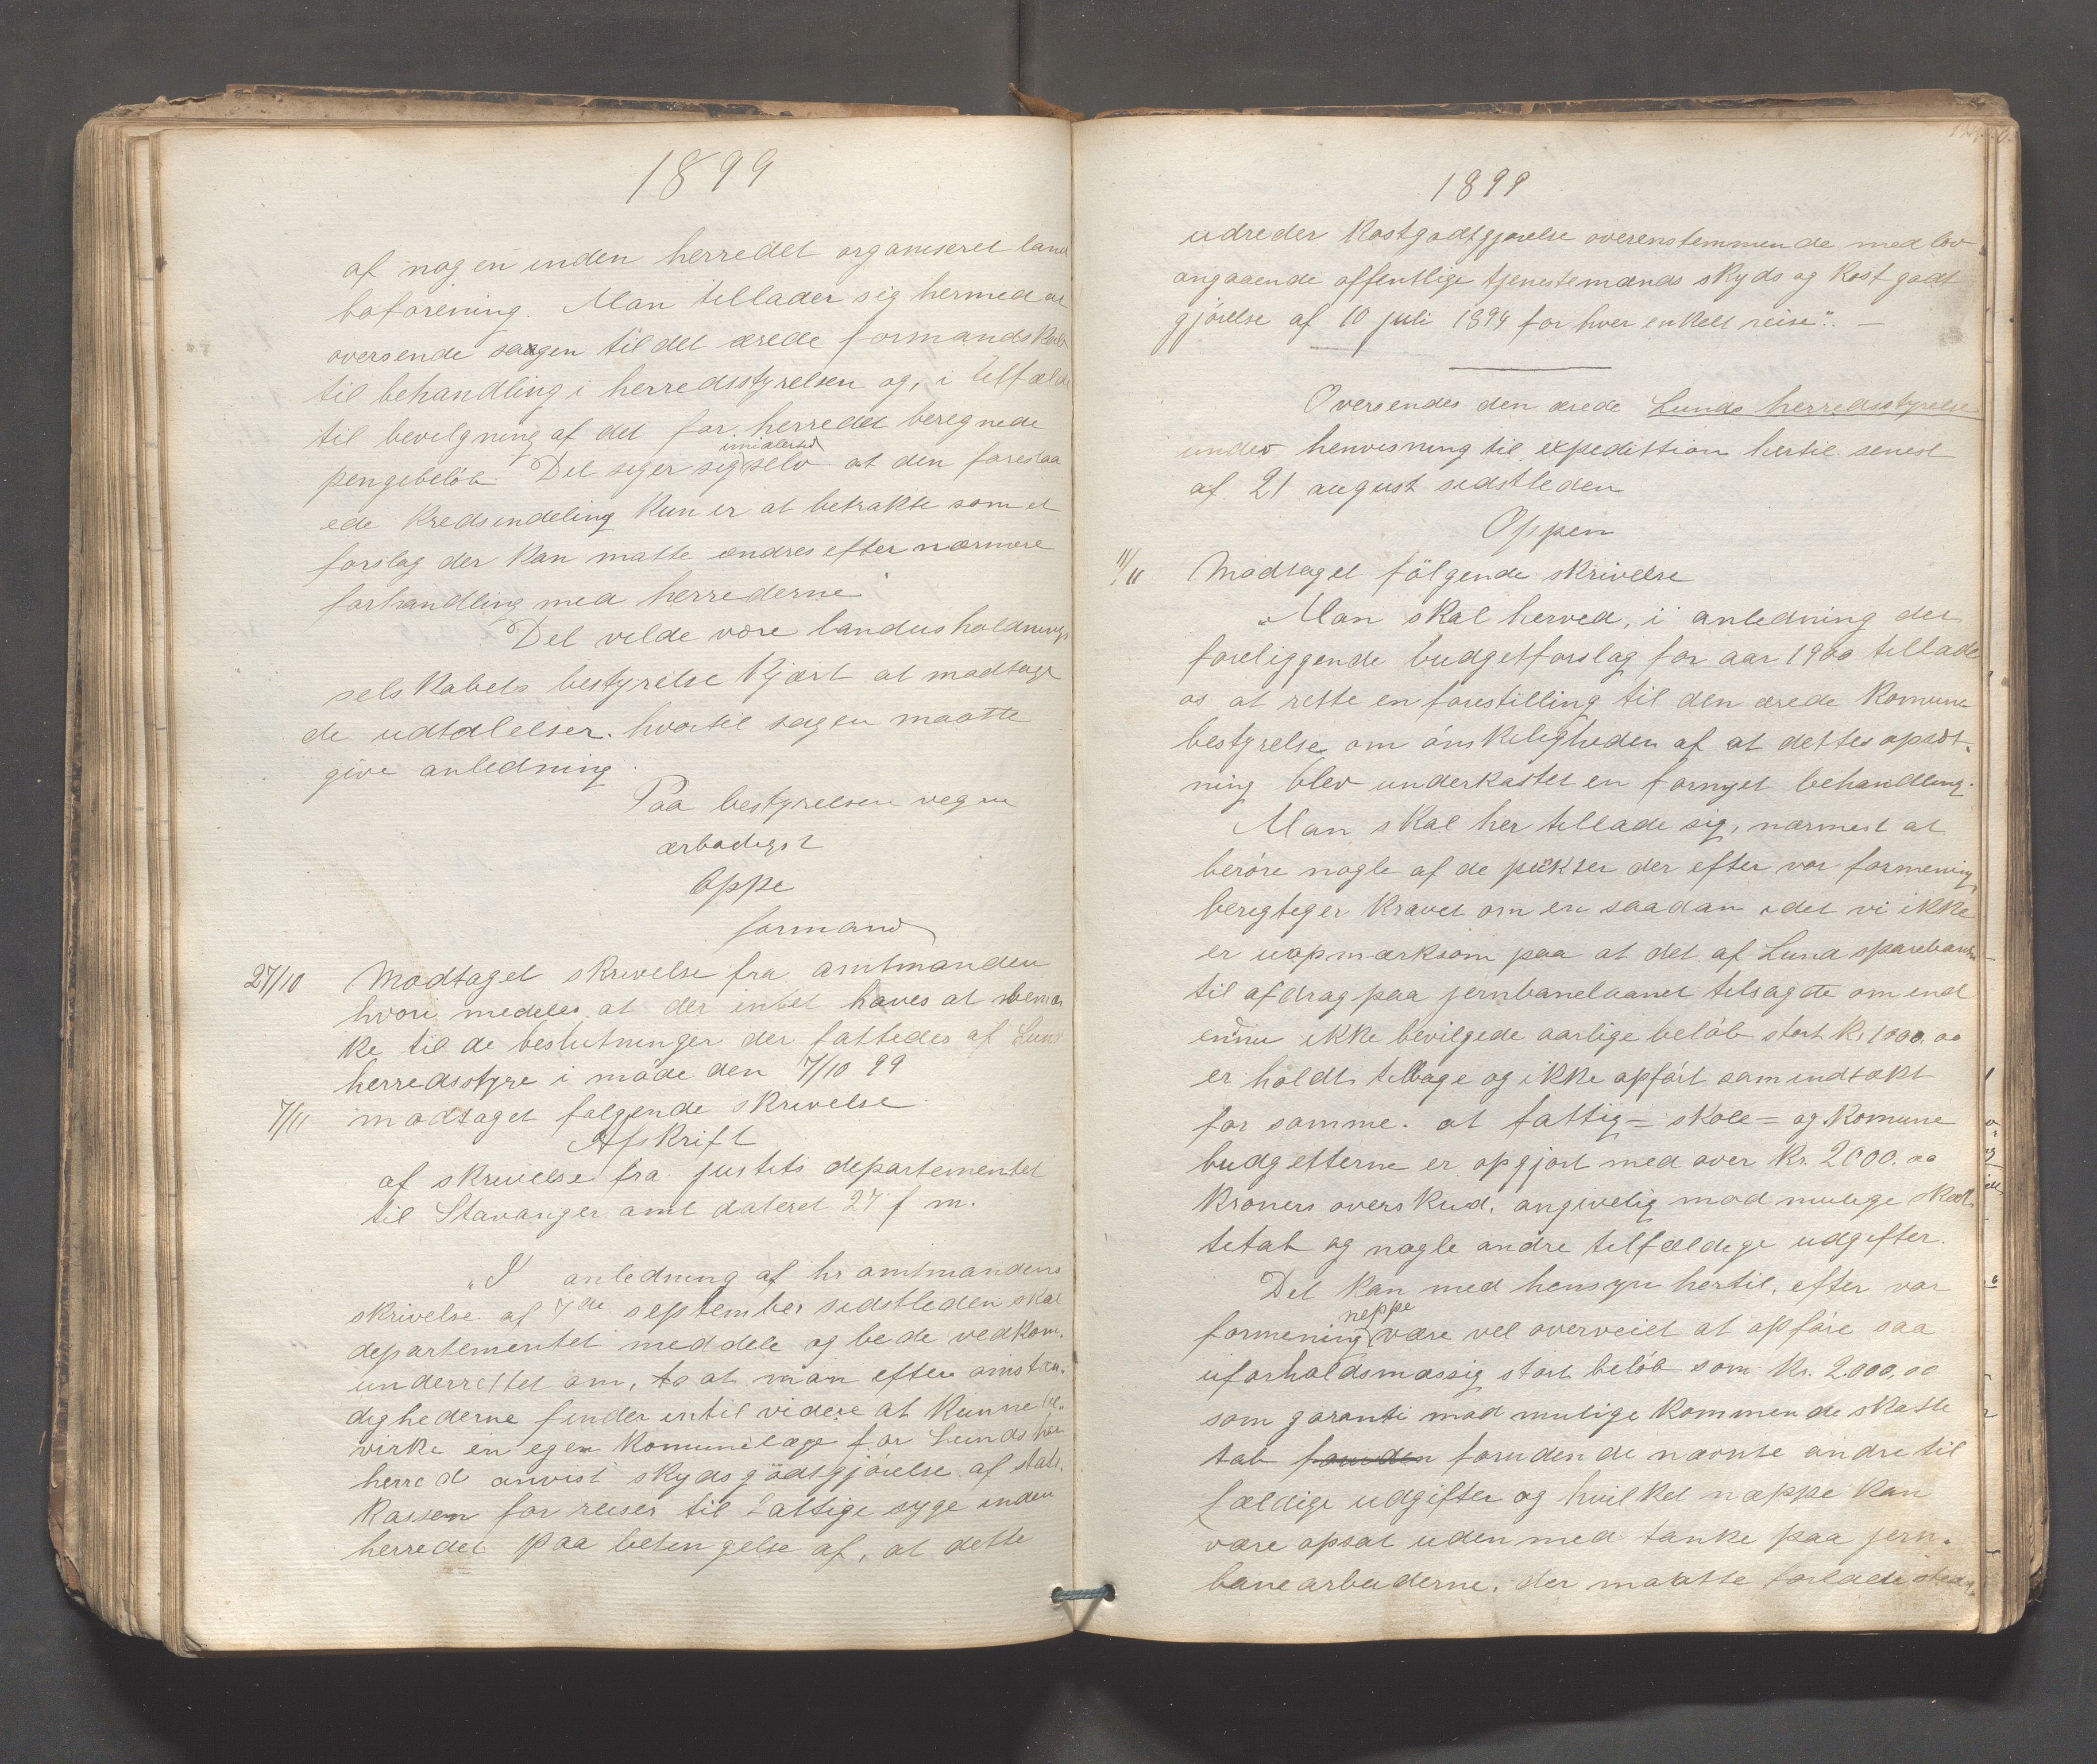 1899
af nogen inden herredet organiseret land
boforening. Man tillader sig hermed at
oversende sagen til det ærede formandskab
til behandling i herredsstyrelsen og, i tilfælde
til bevilgning af det for herredet beregnede
pengebeløb. Det siger sig imidlertid selv at den foreslaa
ede Kredsindeling Kun er at betrakte som et
forslag der Kan maatte ændres efter nærmere
forhandling med herrederne
Det vilde være landhusholdnings
selskabets bestyrelse Kjært at modtage
de udtalelser. hvortil sagen maatte
give anledning.
Paa bestyrelsens vegne
ærbødigst
Oppe
formand
27/10 Modtaget skrivelse fra amtmanden
hvori medeles at der intet haves at bemær
ke til de beslutninger der fattedes af Lund
herredsstyre i møde den 7/10 99
7/11 modtaget følgende skrivelse
Afskrift
af skrivelse fra justits departementet
til Stavanger amt dateret 27 f m.
"I anledning af hr amtmandens
skrivelse af 7de september sidstleden skal
departementet meddele og bede vedkom.
underrettet om, at man efter omstæn.
dighederne finder intil videre at kunne til.
virke en egen Komunelæge for Lunds
herred anvist skydsgodtgjørelse af stats.
Kassen for reiser til fattige syge inden
herredet paa betingelse af, at dette
1899
udreder Kostgodtgjørelse overenstemmende med lov
angaaende offentlige tjenestemænds skyds og Kost godt
gjørelse af 10 juli 1894 for hver enkelt reise". —
Oversendes den ærede Lunds herredsstyrelse
under henvisning til expedittion hertil senest
af 21 august sidstleden
Oppen
11/11 Modtaget følgende skrivelse
"Man skal herved, i anledning det
foreliggende budgetforslag for aar 1900 tillade
os at rette en forestilling til den ærede Komune
bestyrelse om ønskeligheden af at dettes opsæt.
ning blev underkastet en fornyet behandling.
Man skal her tillade sig, nærmest at
berøre nogle af de punkter der efter vor formening
beregtiger Kravet om en saadan idet vi ikke
er uopmærksom paa at det af Lund sparebank
til afdrag paa jernbanelaanet tilsagte om end
ennu ikke bevilgede aarlige beløb stort Kr 1000.00
er holdt tilbage og ikke opført som indtækt
for samme. at fattig= skole= og Komune
budgetterne er opgjort med over Kr. 2000.00
Kroners overskud, angivelig mod mulige skat
tetab og nogle andre tilfældige udgifter.
Det Kan med hensyn hertil, efter vor
formening neppe være vel overveiet at opføre saa
uforholdsmæssig stort beløb som Kr. 2.000,00
som garanti mod mulige Kommende skatte
tab foruden de nævnte andre til
fældige udgifter og hvilket næppe Kan
være opsat uden med tanke paa jern.
banearbeiderne, der maatte forlade